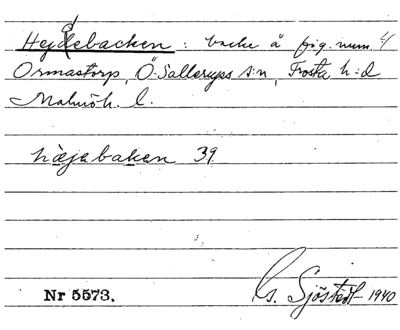 Hejdebacken: backe å fig. num. 4
Ormastorp, Ö. Sallerups s:n, Frosta h:d
Malmöh. l.
hæjebaken 39
Nr 5573.
G. Sjöstedt 1940